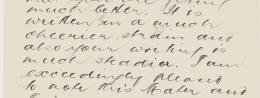 much better. It is
written in a much
cheerier strain and
also your writing is
much steadier. I am
exceedingly pleased
to note this Mater and